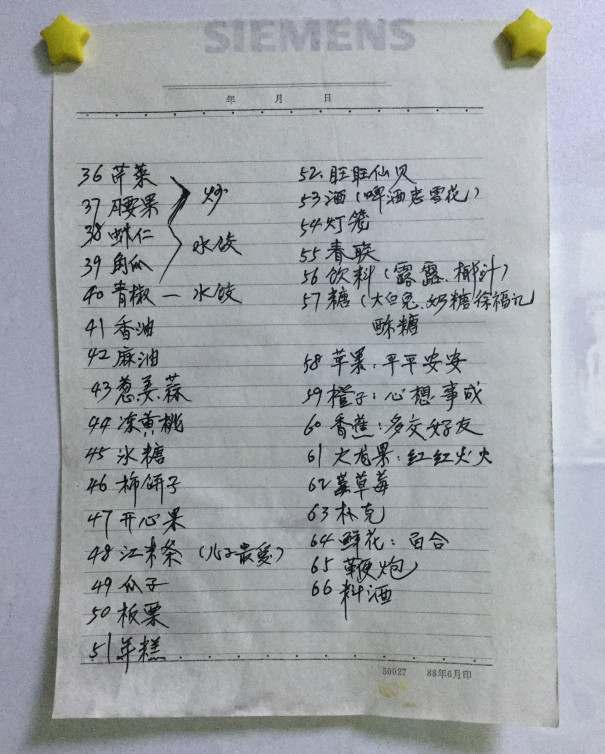 SIEMENS
年 月 日
36 芹菜
37 腰果 炒
38 虾仁
39 角瓜 水饺
40 青椒 — 水饺
41 香油
42 麻油
43 葱.姜.蒜
44 冻黄桃
45 冰糖
46 柿饼子
47 开心果
48 江米条 (儿子最爱)
49 瓜子
50 板栗
51 年糕
52. 旺旺仙贝
53 酒 (啤酒老雪花)
54 灯笼
55 春联
56 饮料 (露露.椰汁)
57 糖 (大白兔.奶糖徐福记
酥糖
58 苹果:平平安安
59 橙子:心想事成
60 香蕉:多交好友
61 火龙果:红红火火
62 草莓
63 扑克
64 鲜花:百合
65 鞭炮
66 料酒
50027 88年6月印